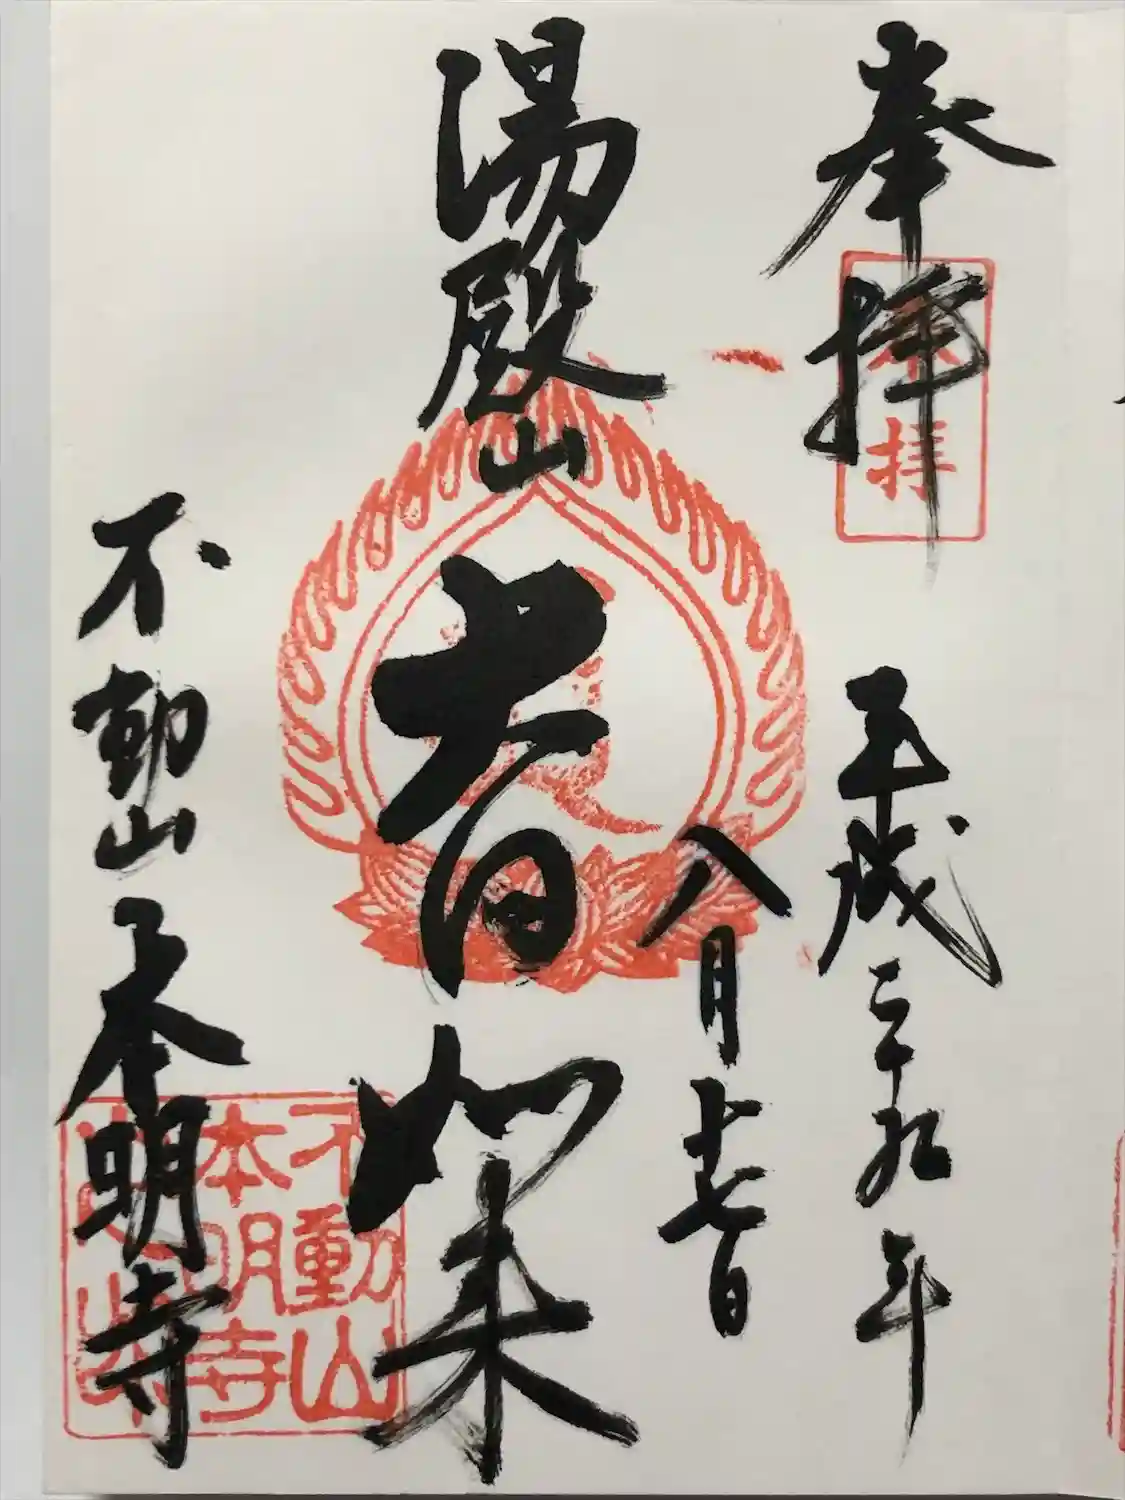 奉拝
拝
平成二十九年
八月十七日
湯殿山
大日如来
不動山本明寺
不動山
本明寺